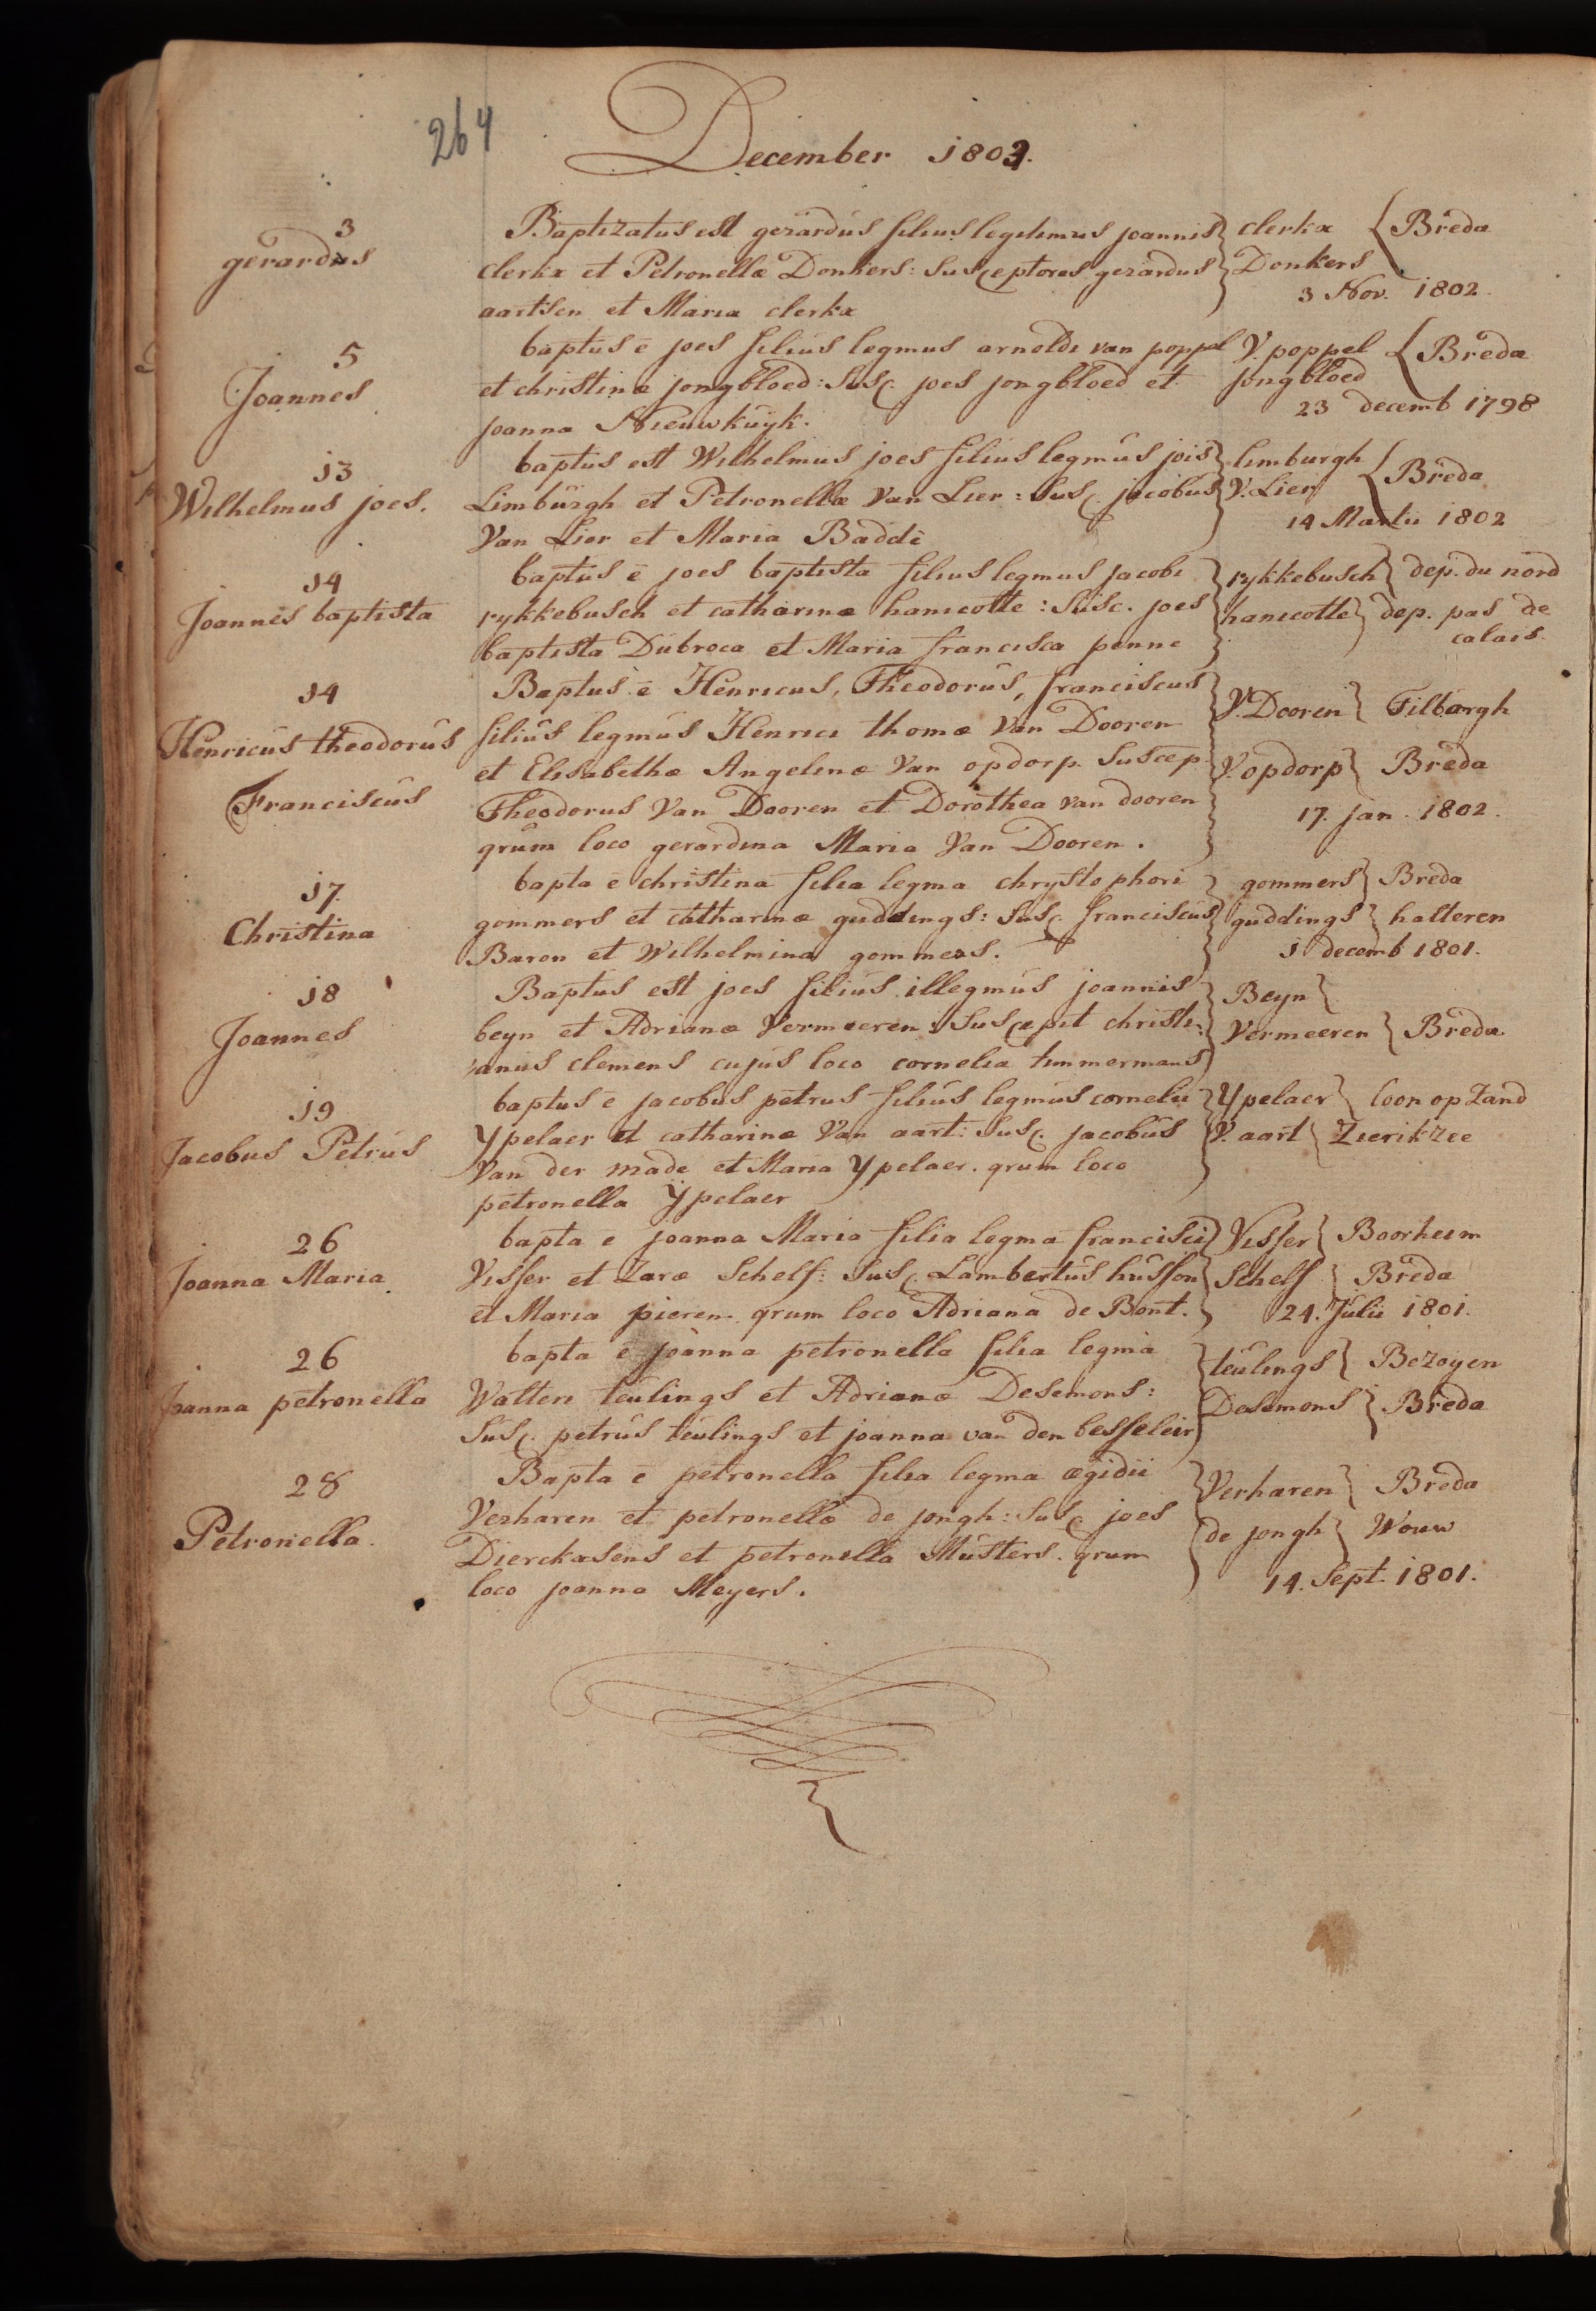 264
December 1803.
3
gerardus
Baptizatus est gerardus filius legitimus joannis
clerkx et Petronellæ Donkers: Susceptores gerardus
aartsen et Maria clerkx
clerkx { Breda
Donkers
3 Nov. 1802.
5
Joannes
baptus ē joes filius legmus arnoldi van poppel
et christinæ jongbloed: Susc. joes jongbloed et
joanna Nieuwkuyk.
V. poppel { Breda
jongbloed
23 decemb 1798
13
Wilhelmus joes.
baptus est Wilhelmus joes filius legmus jois
Limburgh et Petronellæ Van Lier: Susc. jacobus
Van Lier et Maria Baddé
limburgh { Breda
V. Lier
14 Martii 1802
14
Joannes baptista
baptus ē joes baptista filius legmus jacobi
rykkebusch et catharinæ hanicotte: Susc. joes
baptista Dubroca et Maria francisca penne
rykkebusch } dep. du nord
hanicotte } dep. pas de
calais.
14
Henricus theodorus
Franciscus
Baptus ē Henricus, Theodorus, franciscus
filius legmus Henrici thomæ Van Dooren
et Elisabethæ Angelinæ Van opdorp. Suscep.
Theodorus Van Dooren et Dorothea van dooren
qrum loco gerardina Maria Van Dooren.
V. Dooren } Tilburgh
V. opdorp } Breda
17. jan. 1802.
17.
Christina
bapta ē christina filia legma chrystophori
gommers et catharinæ guddings: Susc. franciscus
Baron et Wilhelmina gommers.
gommers } Breda
guddings } halteren
1 decemb 1801.
18
Joannes
Baptus est joes filius illegmus joannis
beyn et Adrianæ Vermeeren: Suscepit christi:
anus clemens cujus loco cornelia timmermans
Beyn }
Vermeeren } Breda
19
Jacobus Petrus
baptus ē jacobus petrus filius legmus cornelii
Ypelaer et catharinæ Van aart: Susc. jacobus
Van der made et Maria Ypelaer. qrum loco
petronella Ypelaer
Ypelaer } loon op Zand
V. aart } Zierikzee
26
Joanna Maria
bapta ē joanna Maria filia legma francisci
Visser et Zaræ Schelf: Susc. Lambertus husson
et Maria pieren. qrum loco Adriana de Bont.
Visser } Boorheim
Schelf } Breda
24. Julii 1801.
26
Joanna petronella
bapta ē joanna petronella filia legma
Walteri teulings et Adrianæ Desemons:
Susc. petrus teulings et joanna van den besseleir
teulings } Bezoyen
Desemons } Breda
28
Petronella.
Bapta ē petronella filia legma ægidii
Verharen et petronellæ de jongh: Susc. joes
Dierckxsens et petronella Musters. qrum
loco joanna Meyers.
Verharen } Breda
de jongh } Wouw
14. Sept. 1801.